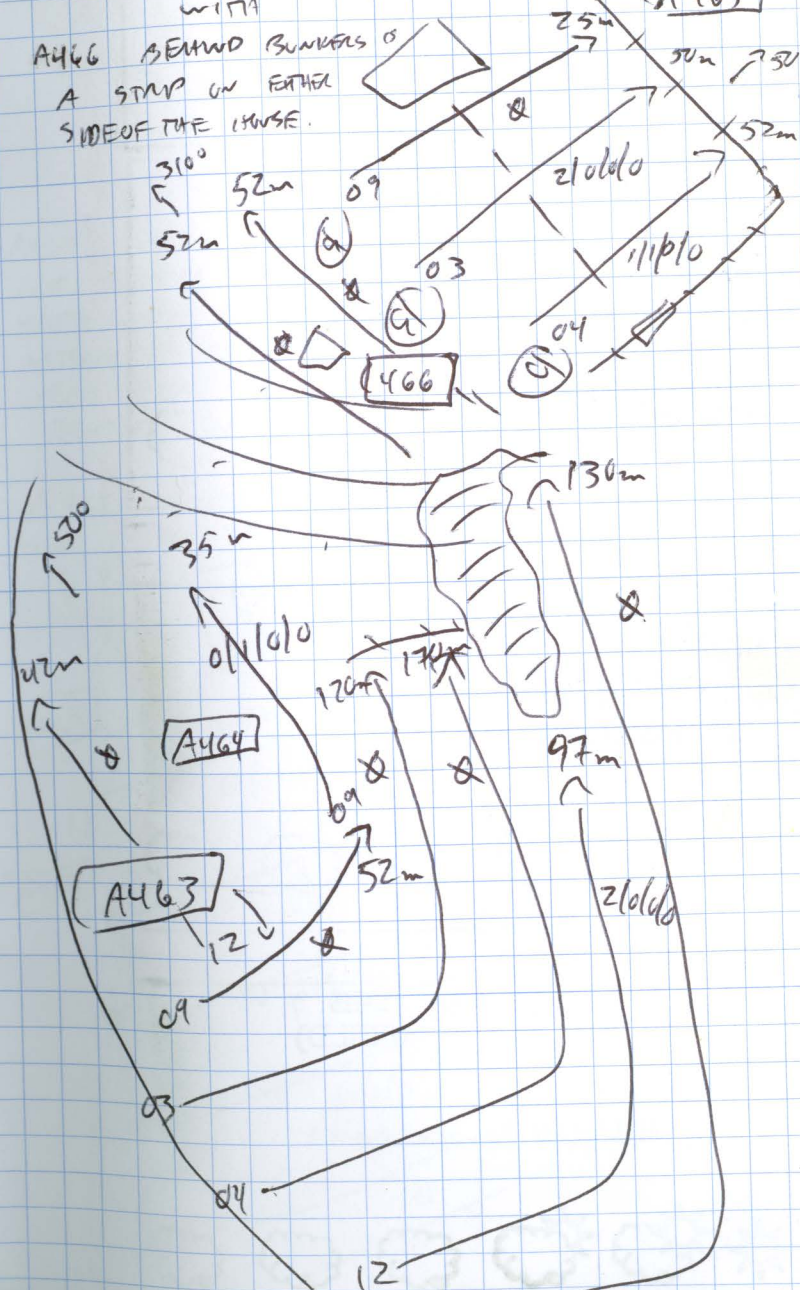 WITH
A466 BEHIND BUNKERS IS
A STRIP ON EITHER
SIDE OF THE HOUSE.
25m
50m
50
52m
310°
52m
52m
09
2/0/0/0
03
1/1/0/0
04
466
130m
50°
35m
0/1/0/0
42m
120m
170m
A464
97m
09
52m
A463
2/0/0/0
12
09
03
04
12